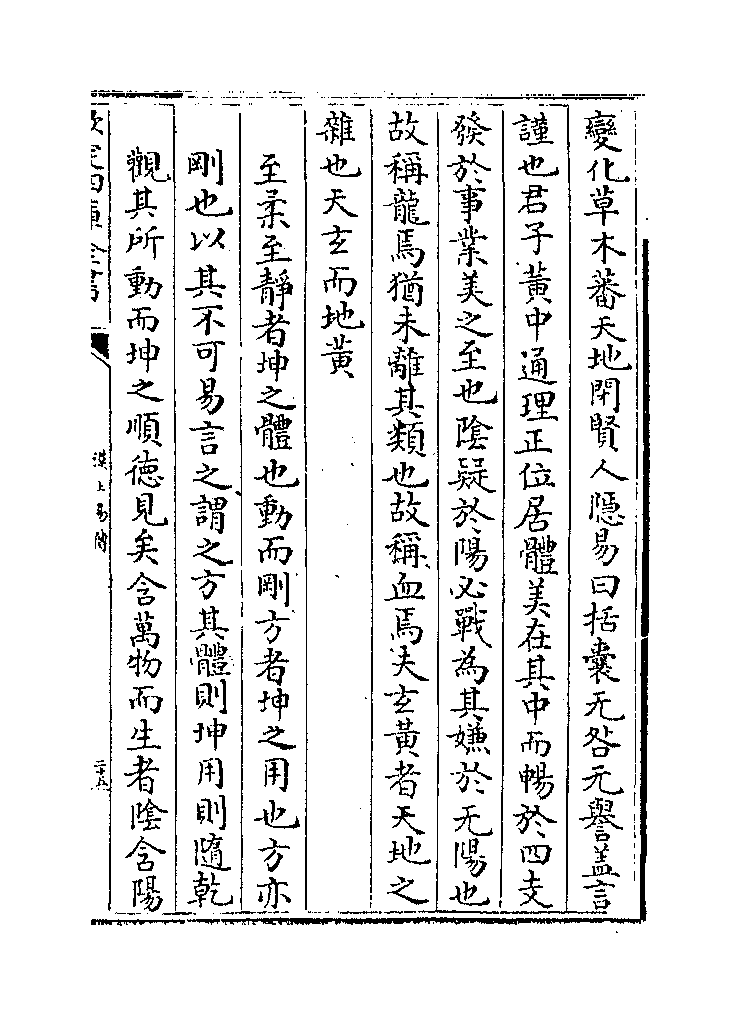 變化草木蕃天地閉賢人隱易曰括囊无咎无譽盖言
謹也君子黄中通理正位居體美在其中而暢於四支
發於事業美之至也陰疑於陽必戰為其嫌於无陽也
故稱龍焉猶未離其類也故稱血焉夫玄黄者天地之
雜也天玄而地黄
至柔至靜者坤之體也動而剛方者坤之用也方亦
剛也以其不可易言之謂之方其體則坤用則隨乾
觀其所動而坤之順徳見矣含萬物而生者陰含陽
欽定四庫全書
漢上易傳
二十五